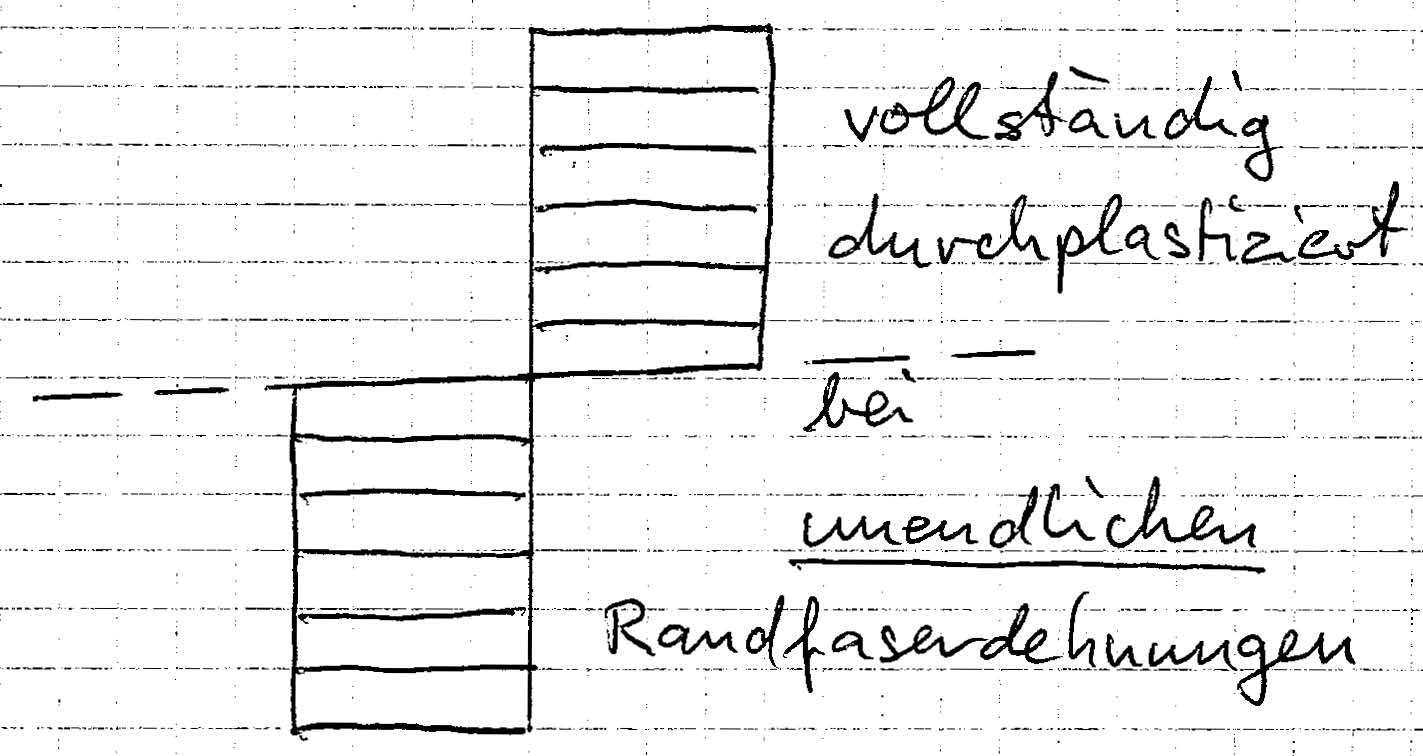 vollständig
durchplastiziert
bei
unendlichen
Randfaserdehnungen